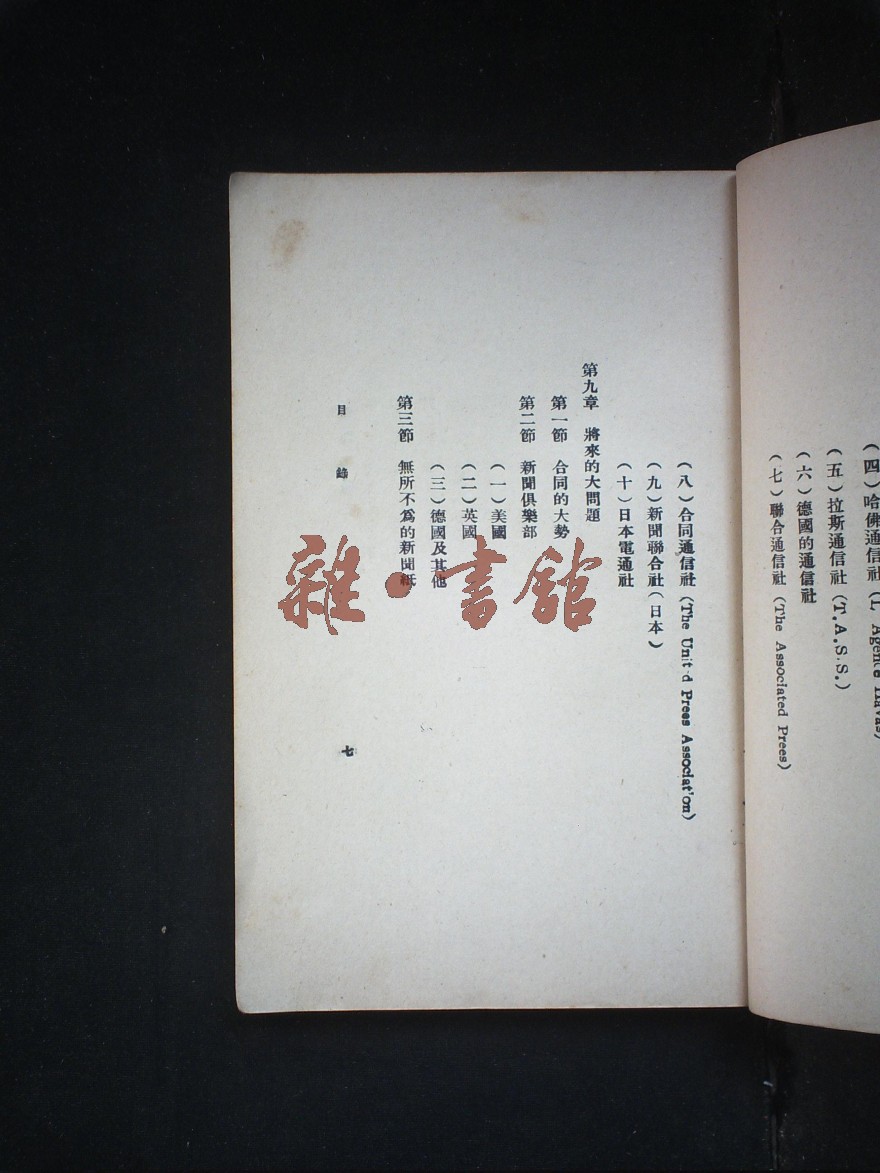 (四)哈佛通信社(L Agence Havas)
(五)拉斯通信社(T.A.S.S.)
(六)德國的通信社
(七)聯合通信社(The Associated Prees)
(八)合同通信社(The Unit d Prees Associat'on)
(九)新聞聯合社(日本)
(十)日本電通社
第九章 將來的大問題
第一節 合同的大勢
第二節 新聞俱樂部
(一)美國
(二)英國
(三)德國及其他
第三節 無所不爲的新聞紙
目錄
七
雜·書館